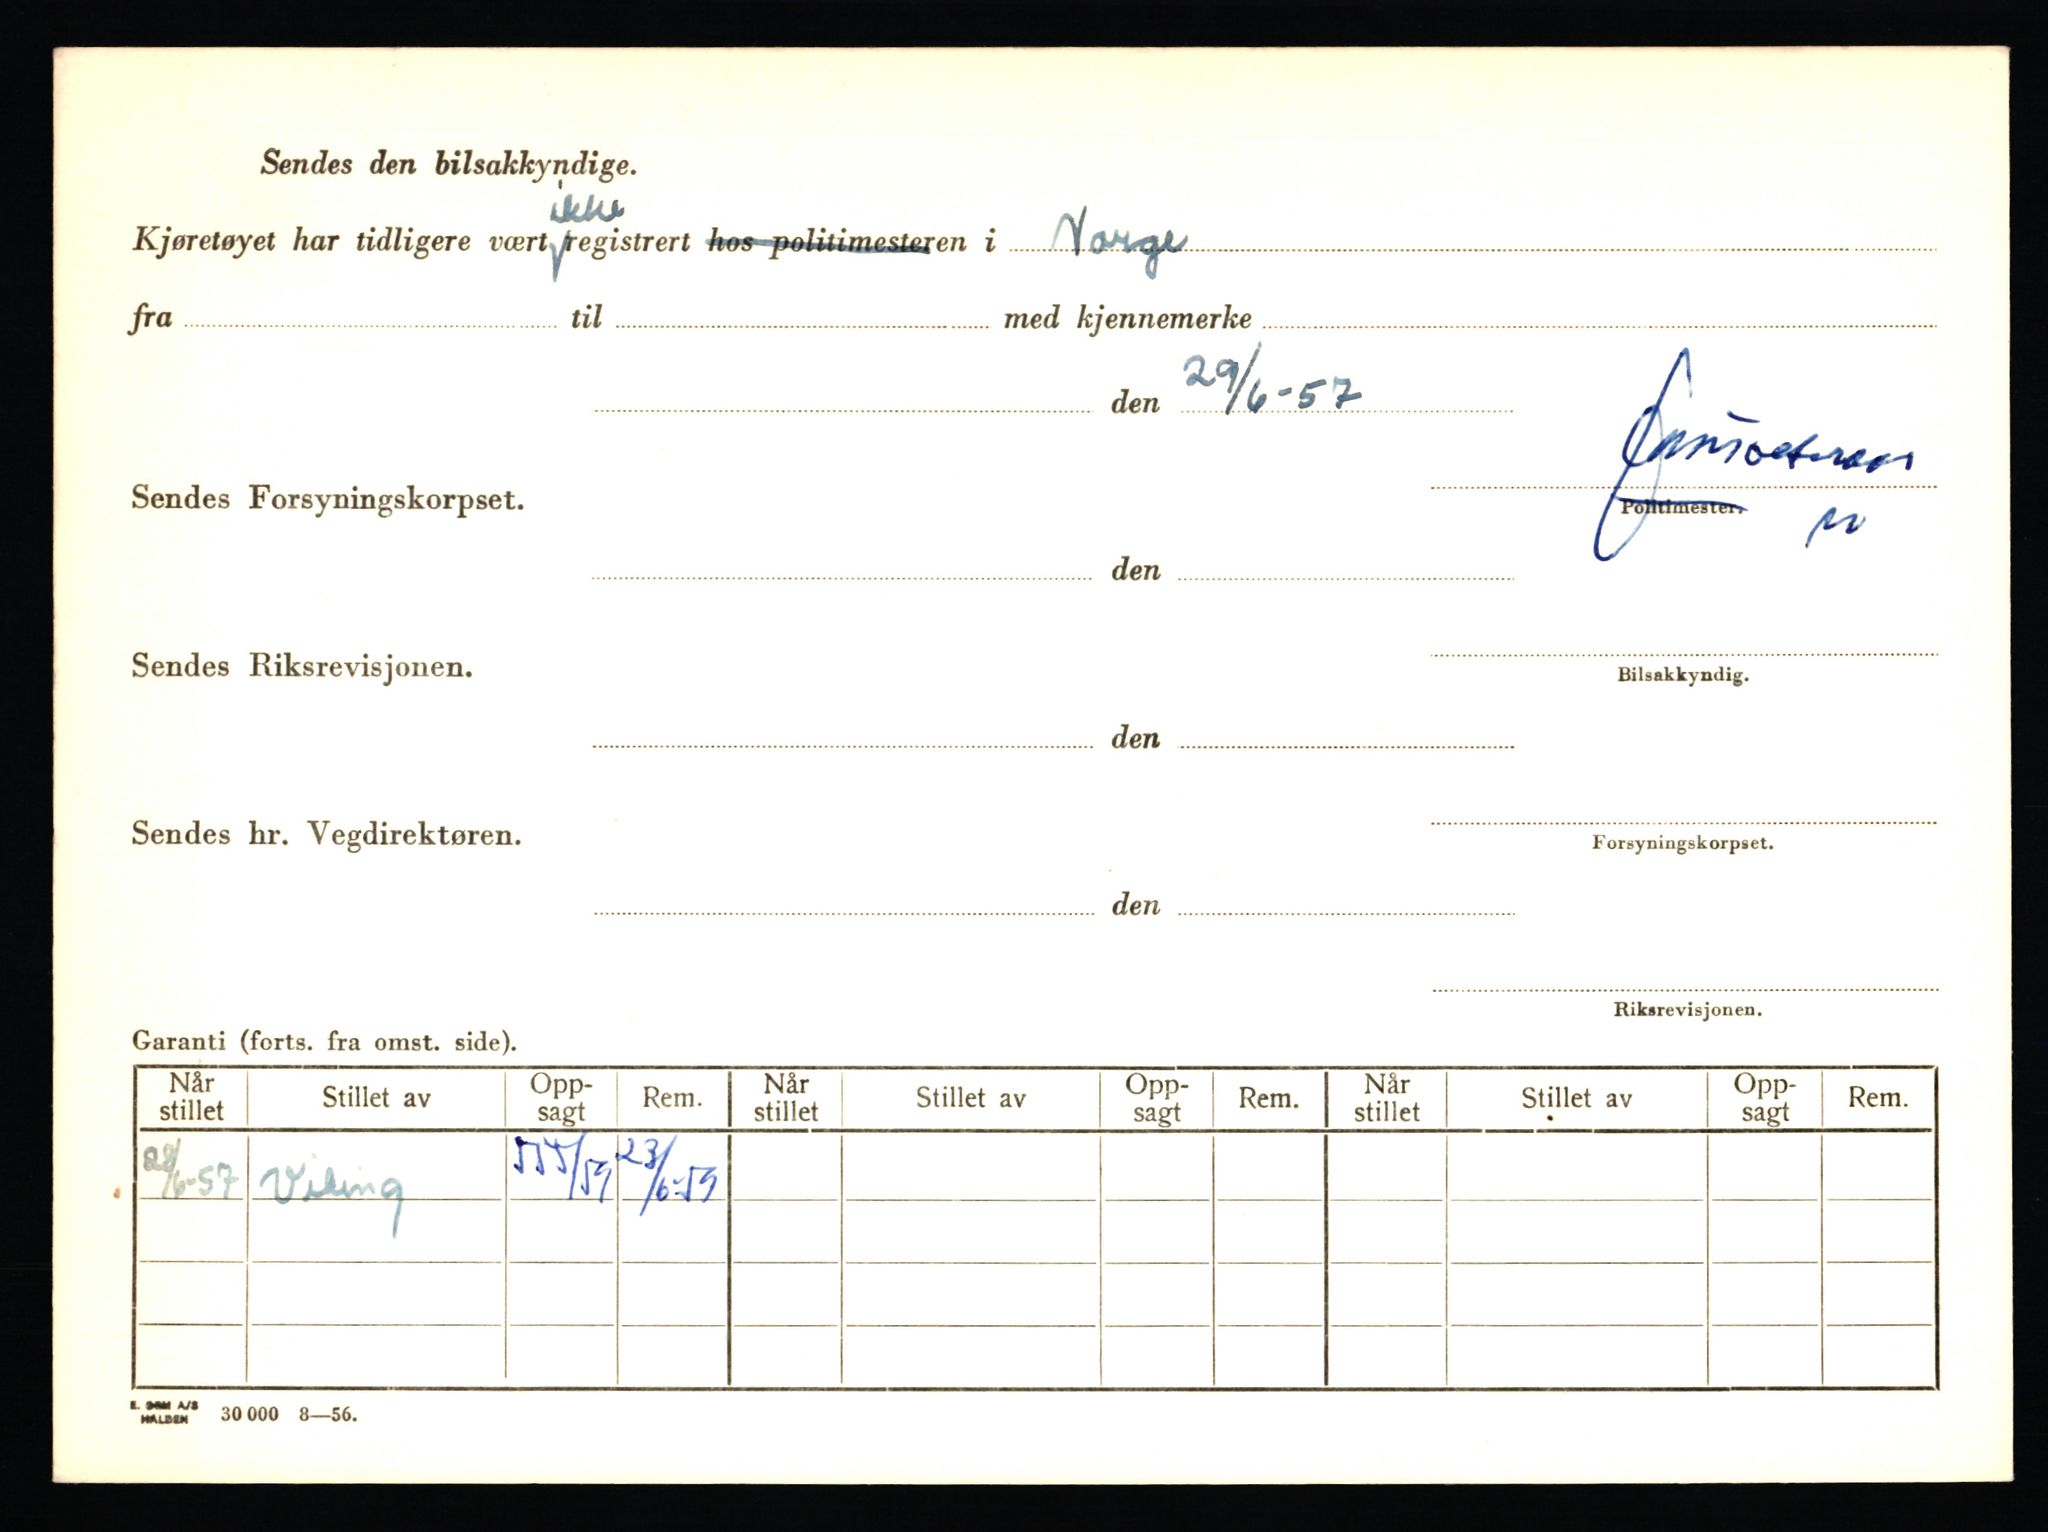 Sendes den bilsakkyndige.
ikke
Kjøretøyet har tidligere vært registrert hos politimesteren i Norge
fra til med kjennemerke
den 29/6-57
Sendes Forsyningskorpset.
Politimester.
den
Sendes Riksrevisjonen.
Bilsakkyndig.
den
Sendes hr. Vegdirektøren.
Forsyningskorpset.
den
Riksrevisjonen.
Garanti (forts. fra omst. side).
Når stillet Stillet av Opp-sagt Rem. Når stillet Stillet av Opp-sagt Rem. Når stillet Stillet av Opp-sagt Rem.
28/6-57 Viking 555/59 23/6-59
E. SEM A/S
HALDEN 30 000 8—56.